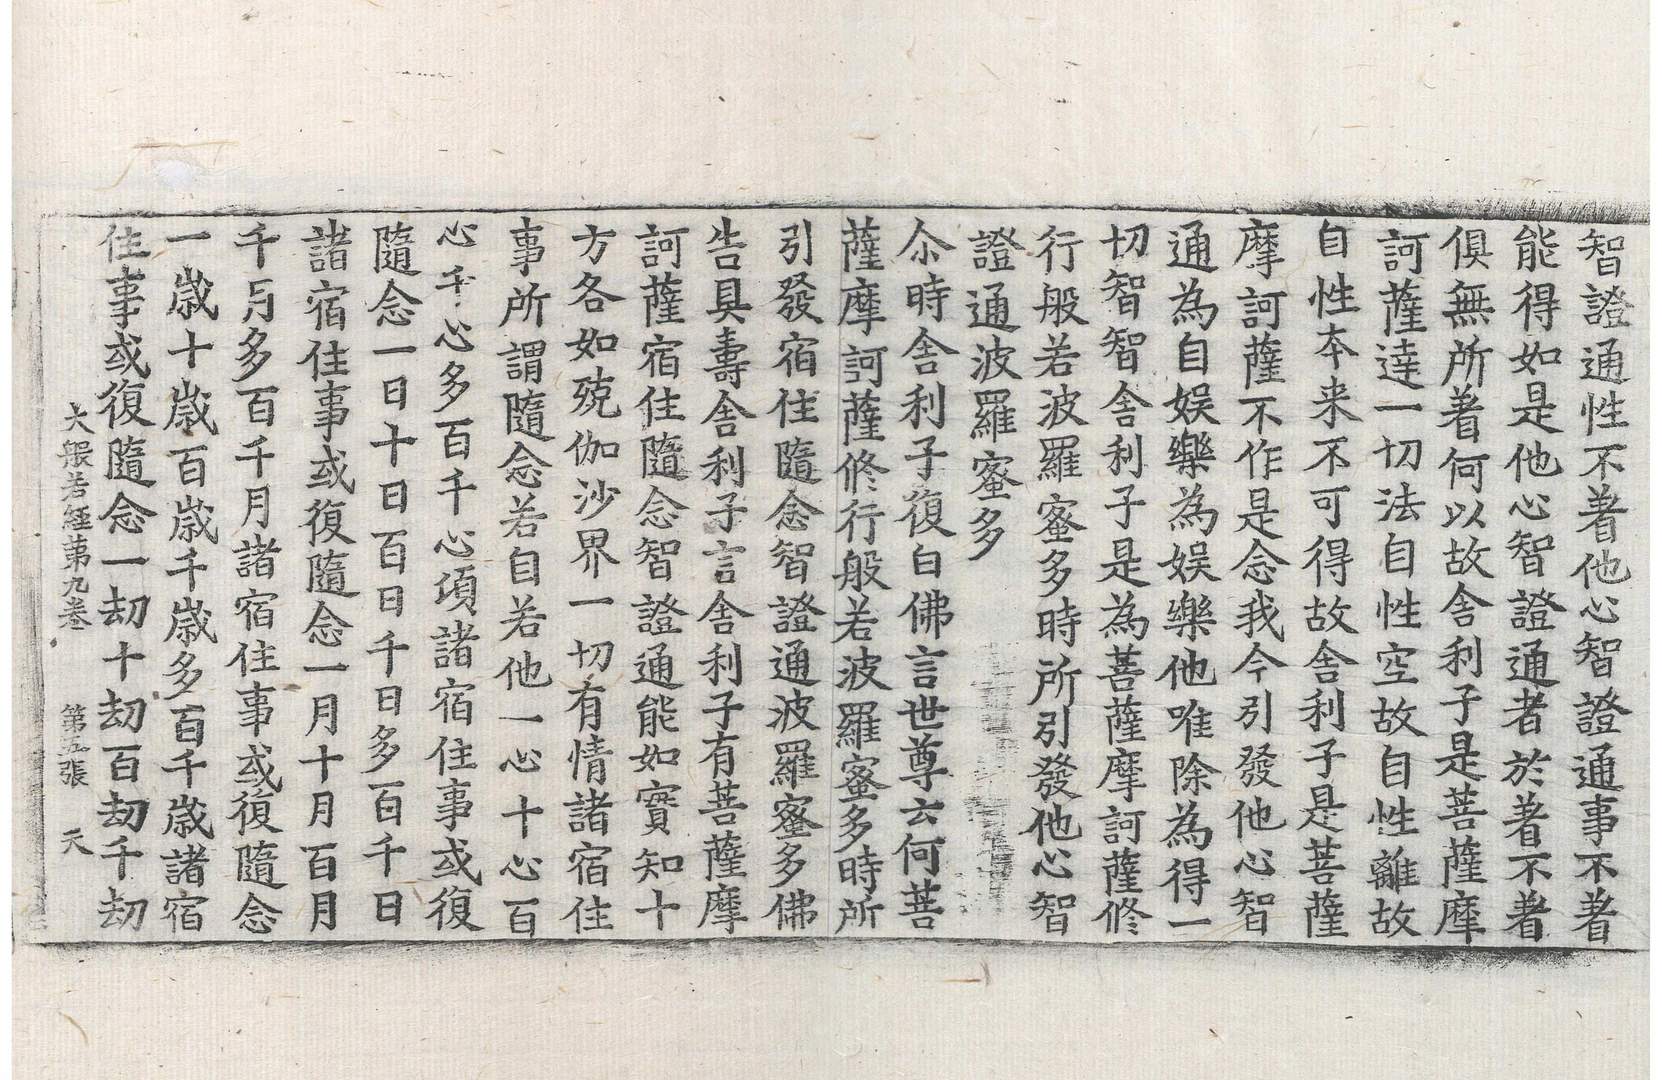 智證通性不著他心智證通事不著
能得如是他心智證通者於著不著
俱無所著何以故舍利子是菩薩摩
訶薩達一切法自性空故自性離故
自性本来不可得故舍利子是菩薩
摩訶薩不作是念我今引發他心智
通為自娱樂為娱樂他唯除為得一
切智智舍利子是為菩薩摩訶薩修
行般若波羅蜜多時所引發他心智
證通波羅蜜多
尒時舍利子復白佛言世尊云何菩
薩摩訶薩修行般若波羅蜜多時所
引發宿住隨念智證通波羅蜜多佛
告具壽舍利子言舍利子有菩薩摩
訶薩宿住隨念智證通能如實知十
方各如殑伽沙界一切有情諸宿住
事所謂隨念若自若他一心十心百
心千心多百千心頃諸宿住事或復
隨念一日十日百日千日多百千日
諸宿住事或復隨念一月十月百月
千月多百千月諸宿住事或復隨念
一歲十歲百歲千歲多百千歲諸宿
住事或復隨念一劫十劫百劫千劫
大般若經第九卷 第五張 天